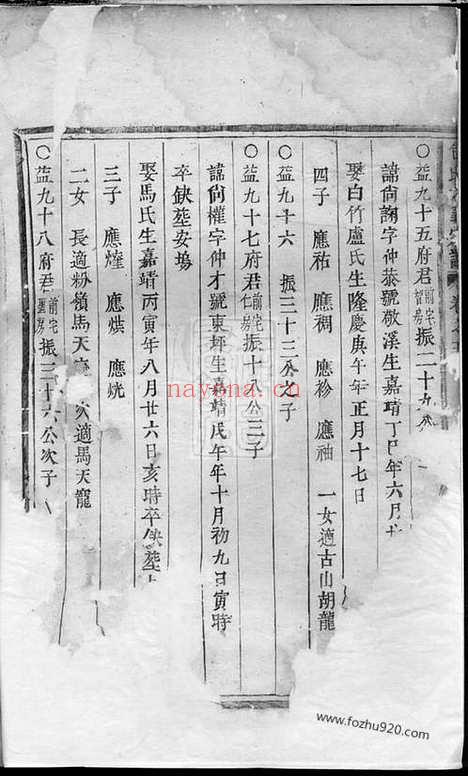 ○益九十五府君前宅智房振二十九
諱尙綯字仲恭號敬溪生嘉靖丁巳年六月廿
娶白竹盧氏生隆慶庚午年正月十七日
四子 應祐 應裯 應袗 應袖 一女適古山胡龍
○益九十六 振三十三公次子
○益九十七府君前宅仁房振十八公三子
諱尙權字仲才號東坪生嘉靖戊午年十月初九日寅時
卒缺塟安塢
娶馬氏生嘉靖丙寅年八月廿六日亥時卒缺塟
三子 應煃 應熯 應烍
二女 長適粉嶺馬天 次適馬天寵
○益九十八府君前宅 房振三十六公次子
nayona.cn
www.fozhu920.com